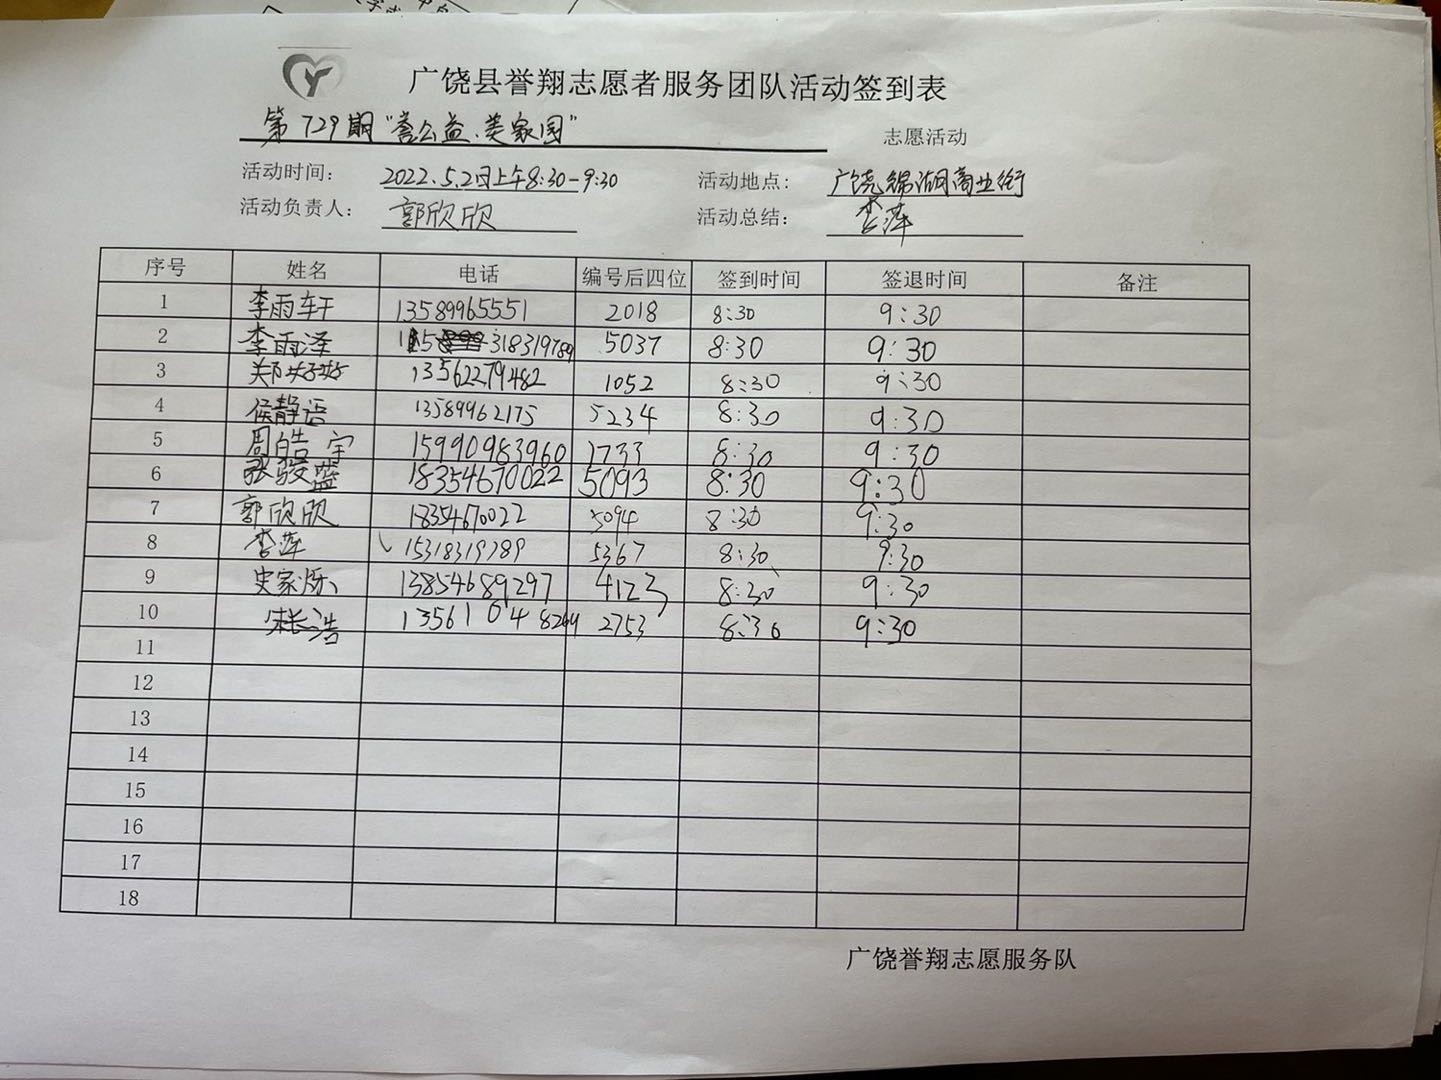 广饶县誉翔志愿者服务团队活动签到表
第729期“誉公益、美家园” 志愿活动
活动时间： 2022.5.2日上午8:30-9:30 活动地点： 广饶锦湖商业街
活动负责人： 郭欣欣 活动总结： 李萍
序号 姓名 电话 编号后四位 签到时间 签退时间 备注
1 李雨轩 13589965551 2018 8:30 9:30
2 李雨泽 15318319789 5037 8:30 9:30
3 郑好好 13562279482 1052 8:30 9:30
4 侯静语 13589962175 5234 8:30 9:30
5 周皓宇 15990983960 1733 8:30 9:30
6 张骏 18354670022 5093 8:30 9:30
7 郭欣欣 18354670022 5094 8:30 9:30
8 李萍 15318319789 5367 8:30 9:30
9 史家烁 13854689297 4123 8:30 9:30
10 浩 13561048244 2753 8:30 9:30
11
12
13
14
15
16
17
18
广饶誉翔志愿服务队